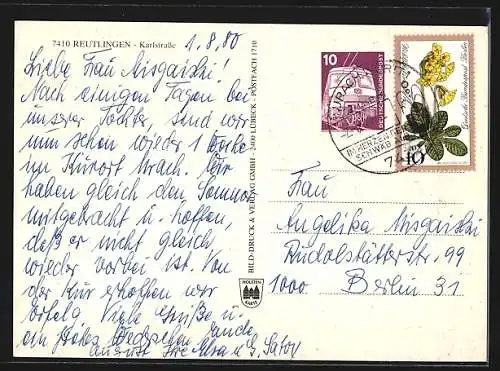 7410 REUTLINGEN - Karlstraße
1.8.80
Liebe Frau Misgaiski!
Nach einigen Tagen bei
unserer Tochter, sind wir
nun schon wieder 1 Woche
im Kurort Urach. Wir
haben gleich den Sommer
mitgebracht u. hoffen,
daß er nicht gleich
wieder vorbei ist. Von
der Kur erhoffen wir
Erfolg. Viele Grüße u.
ein Hohes
August Ihre
BILD-DRUCK & VERLAG GMBH · 2400 LUBECK · POSTFACH 1710
HOLSTEN
KARTE
10
DEUTSCHE BUNDESPOST
URACH
IM HERZEN DER
SCHWÄB
74
Deutsche Bundespost Berlin
10
Frau
Angelika Misgaiski
Rudolstädterstr. 99
1000 Berlin 31